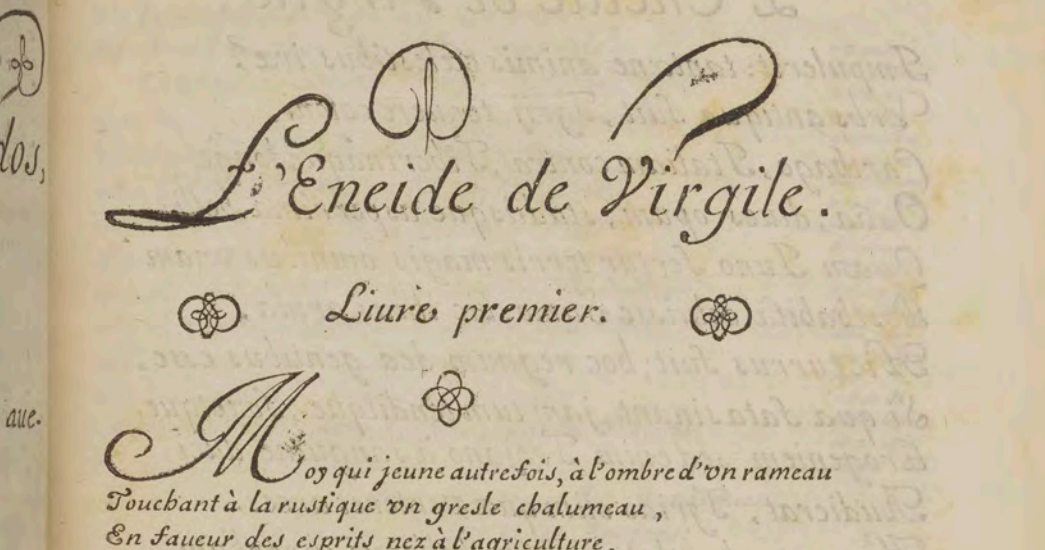 L'Eneide de Virgile.
Liure premier.
Moy qui jeune autrefois, à l'ombre d'vn rameau
Touchant à la rustique vn gresle chalumeau,
En faueur des esprits nez à l'agriculture,
dos,
aue.